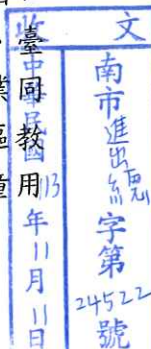 收文
南市進出總字第24522號
中華民國113年11月11日
臺同教用